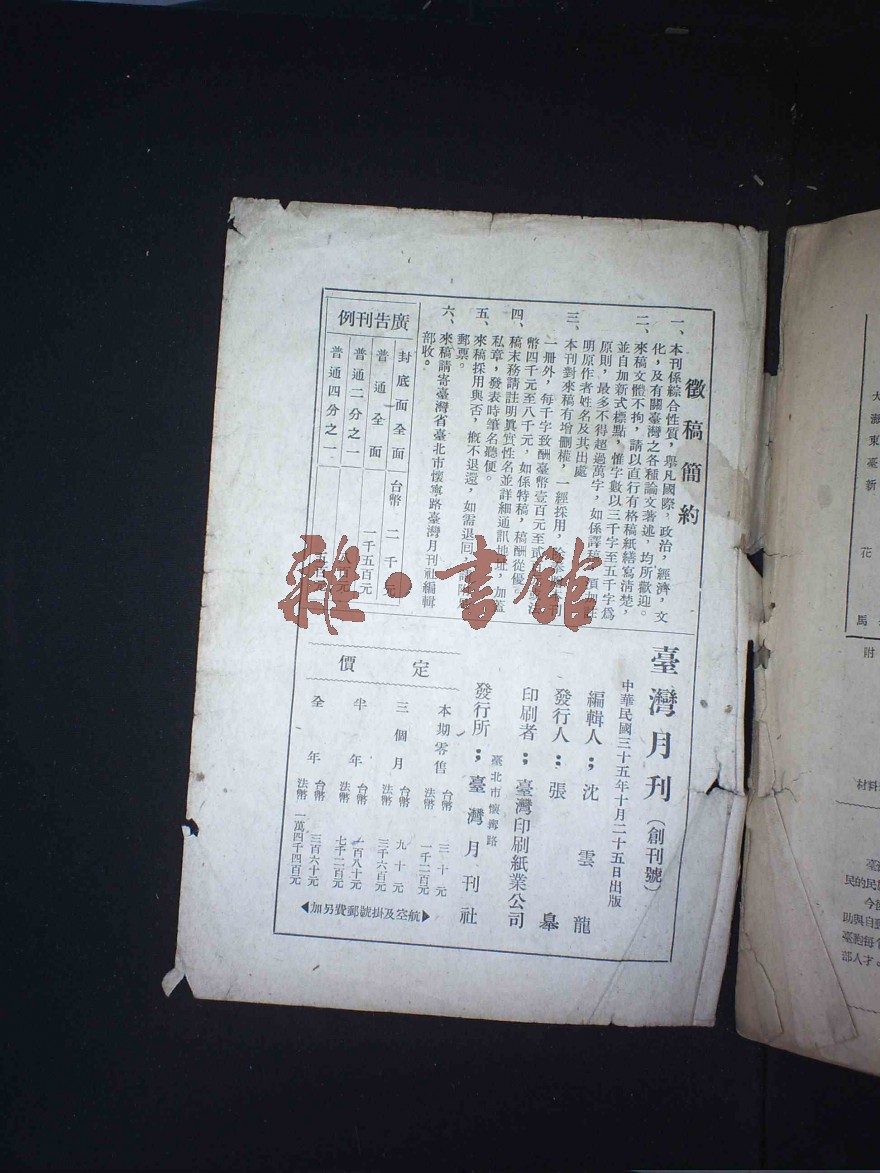 徵稿簡約
一、本刊係綜合性質，舉凡國際，政治，經濟，文
化，及有關臺灣之各種論文著述，均所歡迎。
二、來稿文體不拘，請以直行有格稿紙繕寫清楚，
並自加新式標點，惟字數以三千字至五千字爲
原則，最多不得超過萬字，如係譯稿
明原作者姓名及其出處
三、本刊對來稿有增刪權，一經採用，
一册外，每千字致酬臺幣壹百元至
幣四千元至八千元，如係特稿，稿酬從優。
四、稿末務請註明眞實姓名並詳細通訊地址，加蓋
私章，發表時筆名聽便。
五、來稿採用與否，槪不退還，如需退囘，
郵票。
六、來稿請寄臺灣省臺北市懷寧路臺灣月刊社編輯
部收。
廣告刊例
封底面全面 台幣 二千元
普通全面 一千五百元
普通二分之一
普通四分之一
臺灣月刊（創刊號）
中華民國三十五年十月二十五日出版
編輯人：沈雲龍
發行人：張皋
印刷者：臺灣印刷紙業公司
臺北市懷寧路
發行所：臺灣月刊社
定價
本期零售 台幣 三十元
法幣 一千二百元
三個月 台幣 九十元
法幣 三千六百元
半年 台幣 一百八十元
法幣 七千二百元
全年 台幣 三百六十元
法幣 一萬四千四百元
航空及掛號郵費另加
雜·書館
大
海
東
臺
新
花
馬
附
材料
臺
民的民
今後
助與自
臺胞每
部人才。